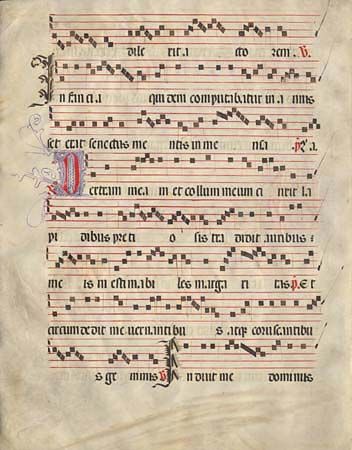 dile xit a cto rem. V.
In fanci a qui dem computabatur in annis
sed erat senectus me ntis in me nsa p. A
R. Dextram me am et collum meum ci nxit la
pi dibus preti o sis tra didit auribus
me is in estima bi les marga ri tas p. Et
circum de dit me vernantibu s atque coruscantibu
s ge mmis V. In duit me dominus